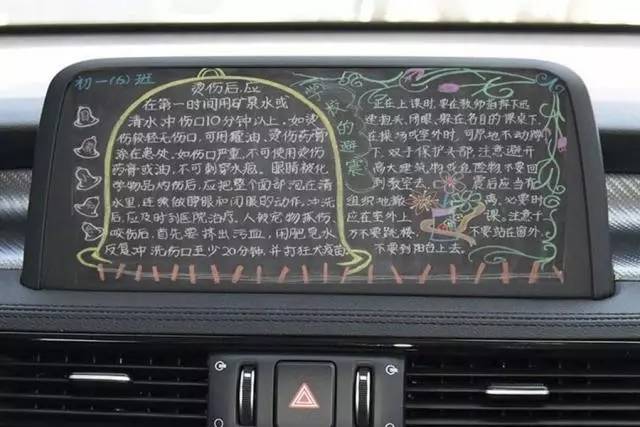 初一(6)班
烫伤后,应
在第一时间用矿泉水或
清水冲伤口10分钟以上.如烫
伤较轻无伤口,可用獾油、烫伤药膏
涂在患处.如伤口严重,不可使用烫伤
药膏或油,不可刺穿水疱. 眼睛被化
学物品灼伤后,应把整个面部泡在清
水里,连续做睁眼和闭眼的动作,冲洗
后,应及时到医院治疗. 人被宠物抓伤、
咬伤后,首先要挤出污血,用肥皂水
反复冲洗伤口至少20分钟,并打狂犬疫苗.
学校的避震
正在上课时,要在教师指挥下迅
速抱头、闭眼、躲在各自的课桌下.
在操场或室外时,可原地不动蹲
下,双手保护头部,注意避开
高大建筑物或危险物.不要回
到教室去. 震后应当有
组织地撤离,必要时
应在室外上课,注意千
万不要跳楼,不要站在窗外,
不要到阳台上去.